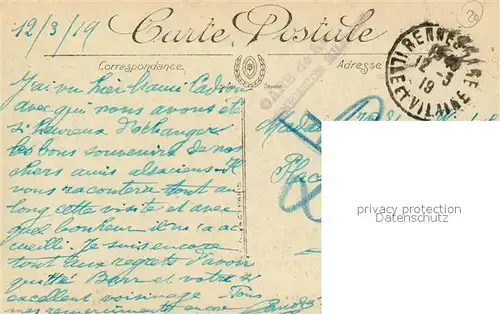 12/3/19
Carte Postale
Correspondance
Adresse
RENNES GARE
ILLE ET VILAINE
12 - 3
19
20
J'ai vu hier l'ami
avec qui nous avons été
si heureux d'échanger
les bons souvenirs de nos
chers amis alsaciens. Il
vous racontera tout au
long cette visite et avec
quel bonheur il m'a ac
cueilli. Je suis encore
tout aux regrets d'avoir
quitté Barr et votre si
excellent voisinage. Tous
mes remerciements encore
Place
privacy protection
www.oldthing.de